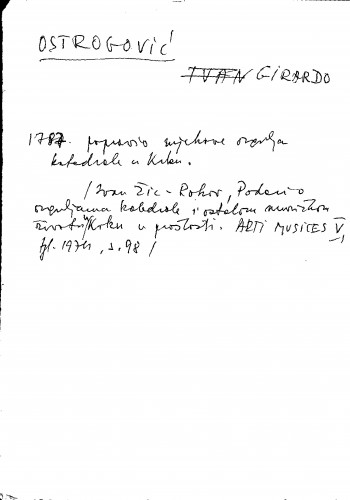 OSTROGOVIĆ
IVAN GIRARDO
1787. popravio mjehove orgulja
katedrale u Krku.
/Ivan Žic-Rokov, Podaci o
orguljama katedrale i ostalom muzičkom
životu Krka u prošlosti. ARTI MUSICES V,
1974, s. 98/